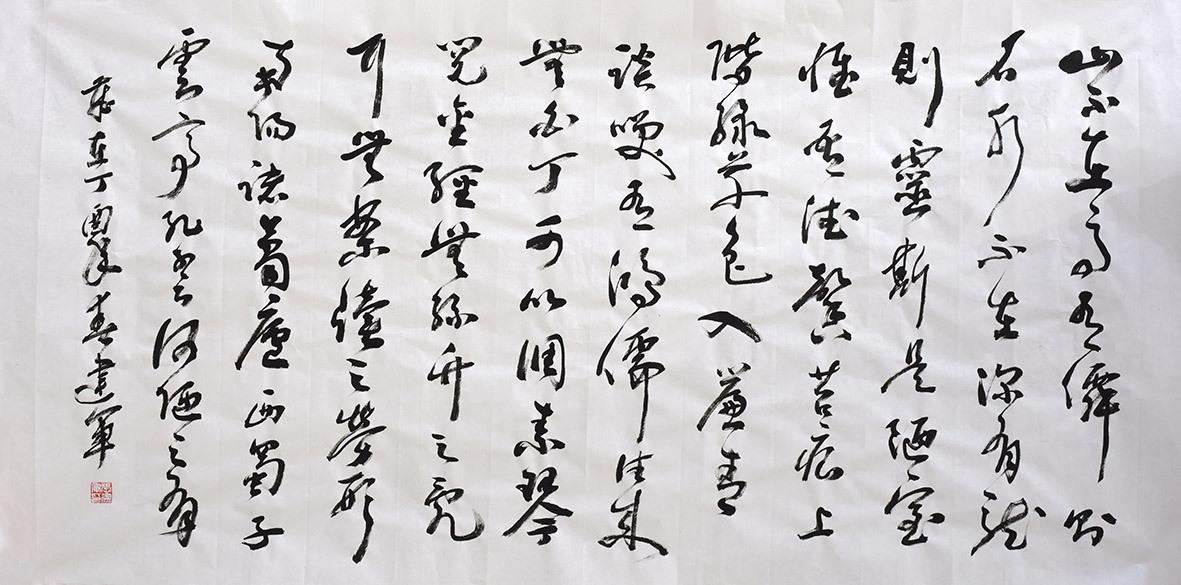 山不在高有僊則
名水不在深有龍
則靈斯是陋室
惟吾德馨苔痕上
階綠草色入簾青
談咲有鴻儒往來
無白丁可以調素琴
閱金經無絲竹之亂
耳無案牘之勞形
南陽諸葛廬西蜀子
雲亭孔子云何陋之有
歲在丁酉年春建軍